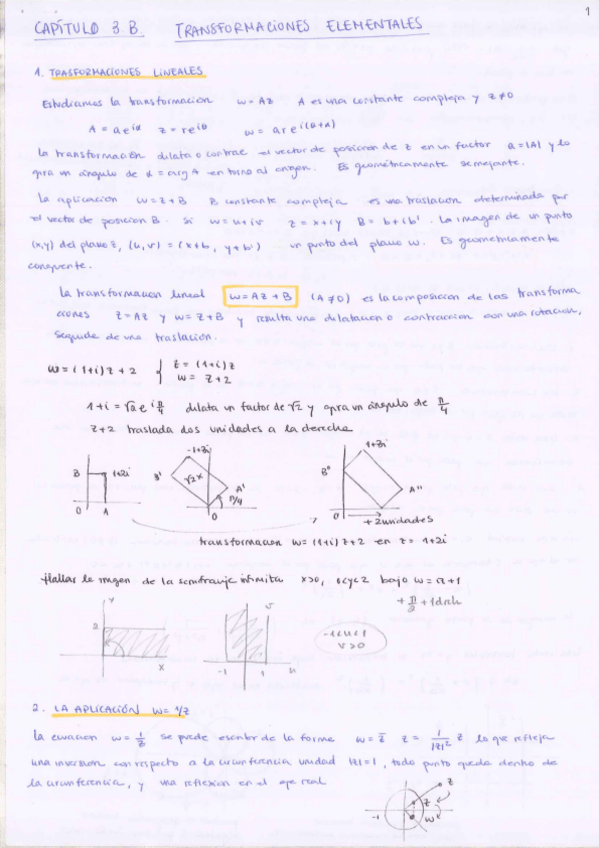 1
CAPÍTULO 3 B. TRANSFORMACIONES ELEMENTALES
1. TRASFORMACIONES LINEALES
Estudiamos la transformación w=Az A es una constante compleja y z≠0
A = a e^iα z = r e^iθ w = a r e^i(θ+α)
la transformación dilata o contrae el vector de posición de z en un factor a=|A| y lo
gira un ángulo de α = arg A en torno al origen. Es geométricamente semejante.
la aplicación w=z+B B constante compleja es una traslación determinada por
el vector de posición B. Si w=u+iv z=x+iy B=b+ib'. La imagen de un punto
(x,y) del plano z, (u,v)=(x+b, y+b') un punto del plano w. Es geométricamente
congruente.
la transformación lineal w=Az+B (A≠0) es la composición de las transforma
ciones Z=Az y w=Z+B y resulta una dilatación o contracción con una rotación,
seguida de una traslación.
w=(1+i)z+2 { Z=(1+i)z
w= Z+2
1+i=√2 e^i π/4 dilata un factor de √2 y gira un ángulo de π/4
Z+2 traslada dos unidades a la derecha
B 1+2i 0 A
-1+3i B' √2 A' π/4 0
B'' 1+3i A'' 0 +2 unidades
transformación w=(1+i)z+2 en z=1+2i
Hallar la imagen de la semifranja infinita x>0, 0<y<2 bajo w=iz+1
+ π/2 + 1 dcha
Y 2 X
v -1 1 u
-1<u<1
v>0
2. LA APLICACIÓN w=1/z
la ecuación w=1/z se puede escribir de la forma w=Z̄ Z=1/|z|² z lo que refleja
una inversión con respecto a la circunferencia unidad |z|=1, todo punto queda dentro de
la circunferencia, y una reflexión en el eje real
-1 z Z w